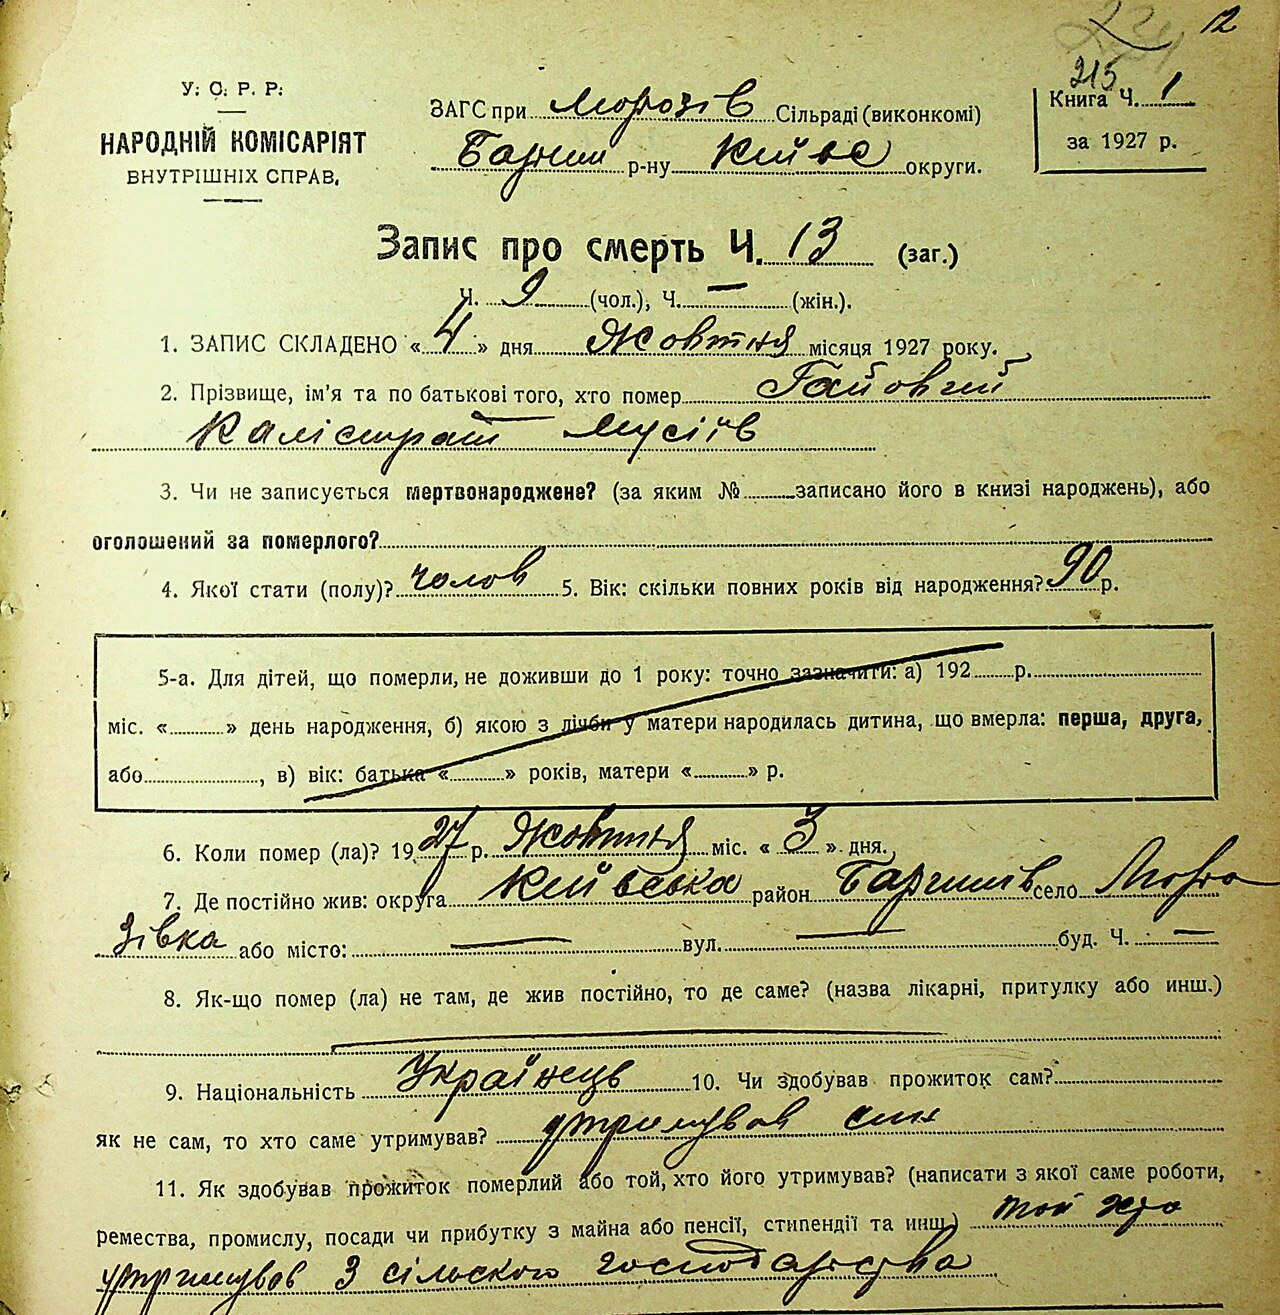 12
215
У. С. Р. Р.
НАРОДНІЙ КОМІСАРІЯТ
ВНУТРІШНІХ СПРАВ.
ЗАГС при Морозів Сільраді (виконкомі)
Баришів р-ну Київс округи.
Книга Ч. 1
за 1927 р.
Запис про смерть Ч. 13 (заг.)
Ч. 9 (чол.), Ч. — (жін.).
1. ЗАПИС СКЛАДЕНО «4» дня Жовтня місяця 1927 року.
2. Прізвище, ім'я та по батькові того, хто помер Гайовий
Калістрат Мусіїв
3. Чи не записується мертвонароджене? (за яким № записано його в книзі народжень), або
оголошений за померлого?
4. Якої стати (полу)? чолов 5. Вік: скільки повних років від народження? 90 р.
5-а. Для дітей, що померли, не доживши до 1 року: точно зазначити: а) 192 р.
міс. « » день народження, б) якою з лічби у матери народилась дитина, що вмерла: перша, друга,
або , в) вік: батька « » років, матери « » р.
6. Коли помер (ла)? 1927 р. Жовтня міс. «3» дня.
7. Де постійно жив: округа Київська район Баришів село Моро
зівка або місто: — вул. — буд. Ч. —
8. Як-що помер (ла) не там, де жив постійно, то де саме? (назва лікарні, притулку або инш.)
9. Національність Українець 10. Чи здобував прожиток сам?
як не сам, то хто саме утримував? утримував син
11. Як здобував прожиток померлий або той, хто його утримував? (написати з якої саме роботи,
ремества, промислу, посади чи прибутку з майна або пенсії, стипендії та инш.) той хто
утримував З сільского господарства